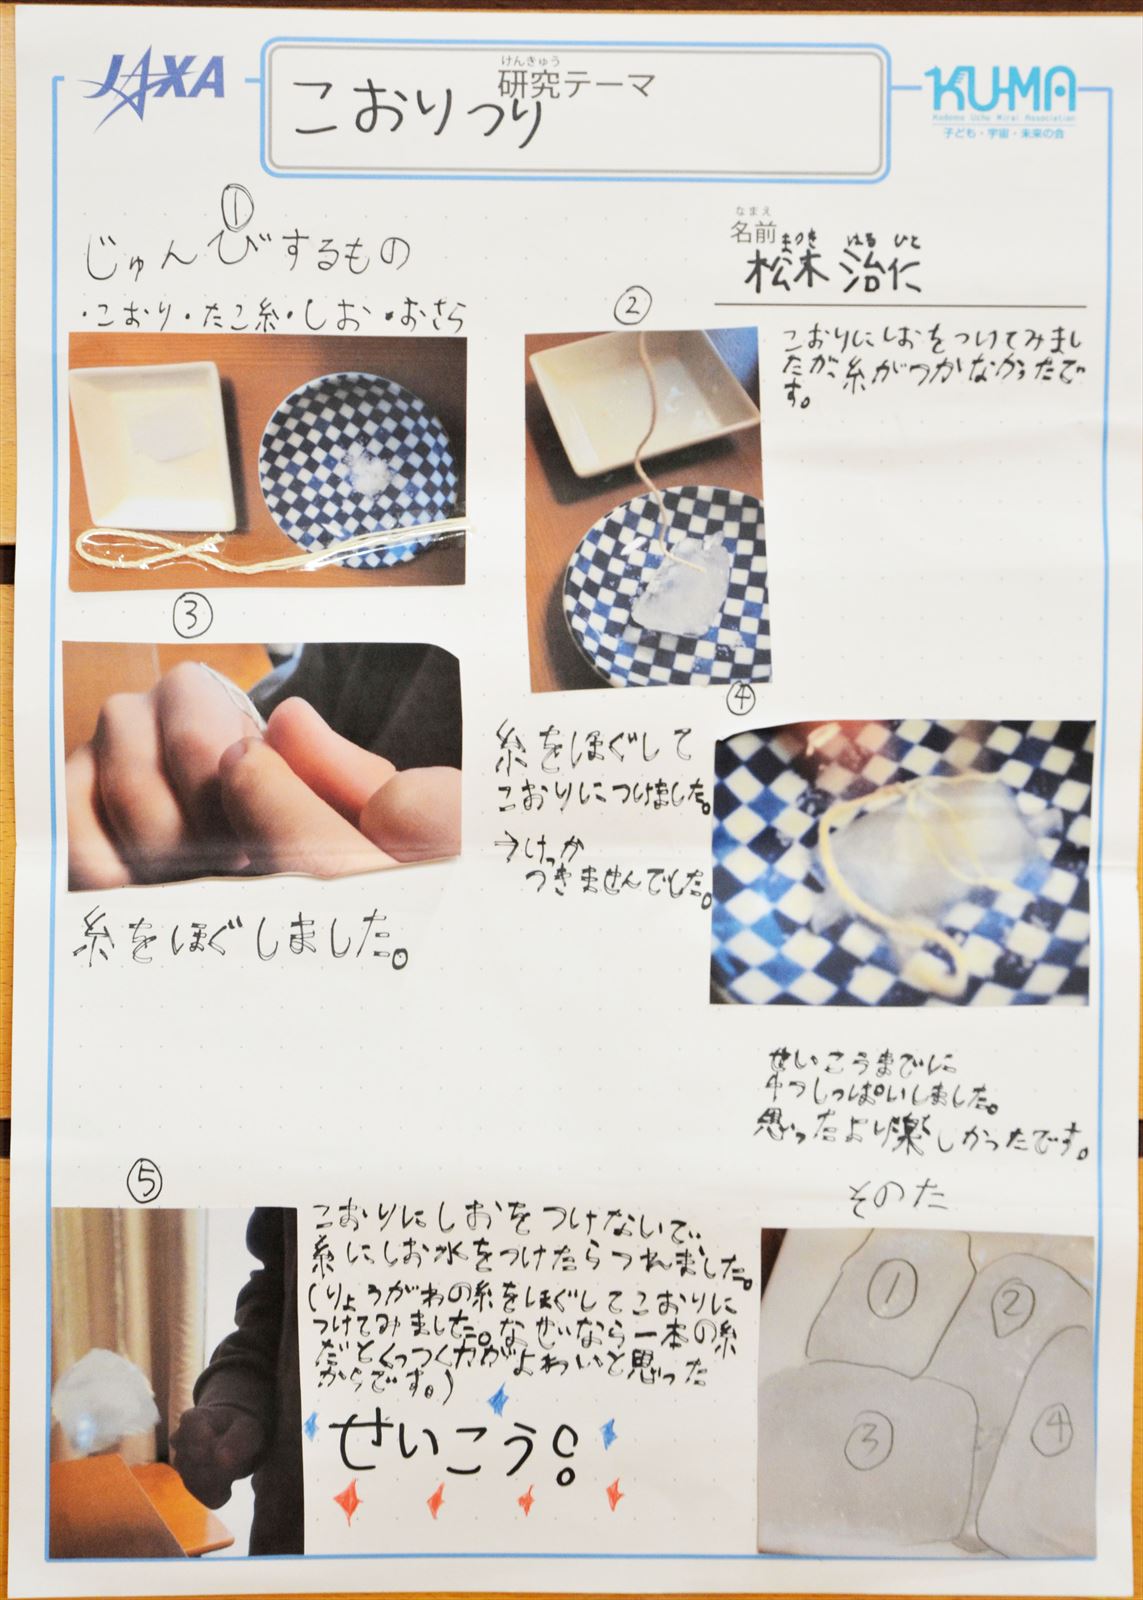 JAXA
けんきゅう
研究テーマ
こおりつり
KU-MA
Kodomo Uchu Mirai Association
子ども・宇宙・未来の会
①
じゅんびするもの
・こおり・たこ糸・しお・おさら
なまえ
名前
まつき はる ひと
松木 治仁
②
こおりにしおをつけてみまし
たが、糸がつかなかったで
す。
③
糸をほぐしました。
④
糸をほぐして
こおりにつけました。
→けっか
つきませんでした。
せいこうまでに
4つしっぱいしました。
思ったより楽しかったです。
⑤
こおりにしおをつけないで、
糸にしお水をつけたらつれました。
(りょうがわの糸をほぐしてこおりに
つけてみました。なぜなら一本の糸
だとくっつく力がよわいと思った
からです。)
せいこう!
そのた
①
②
③
④